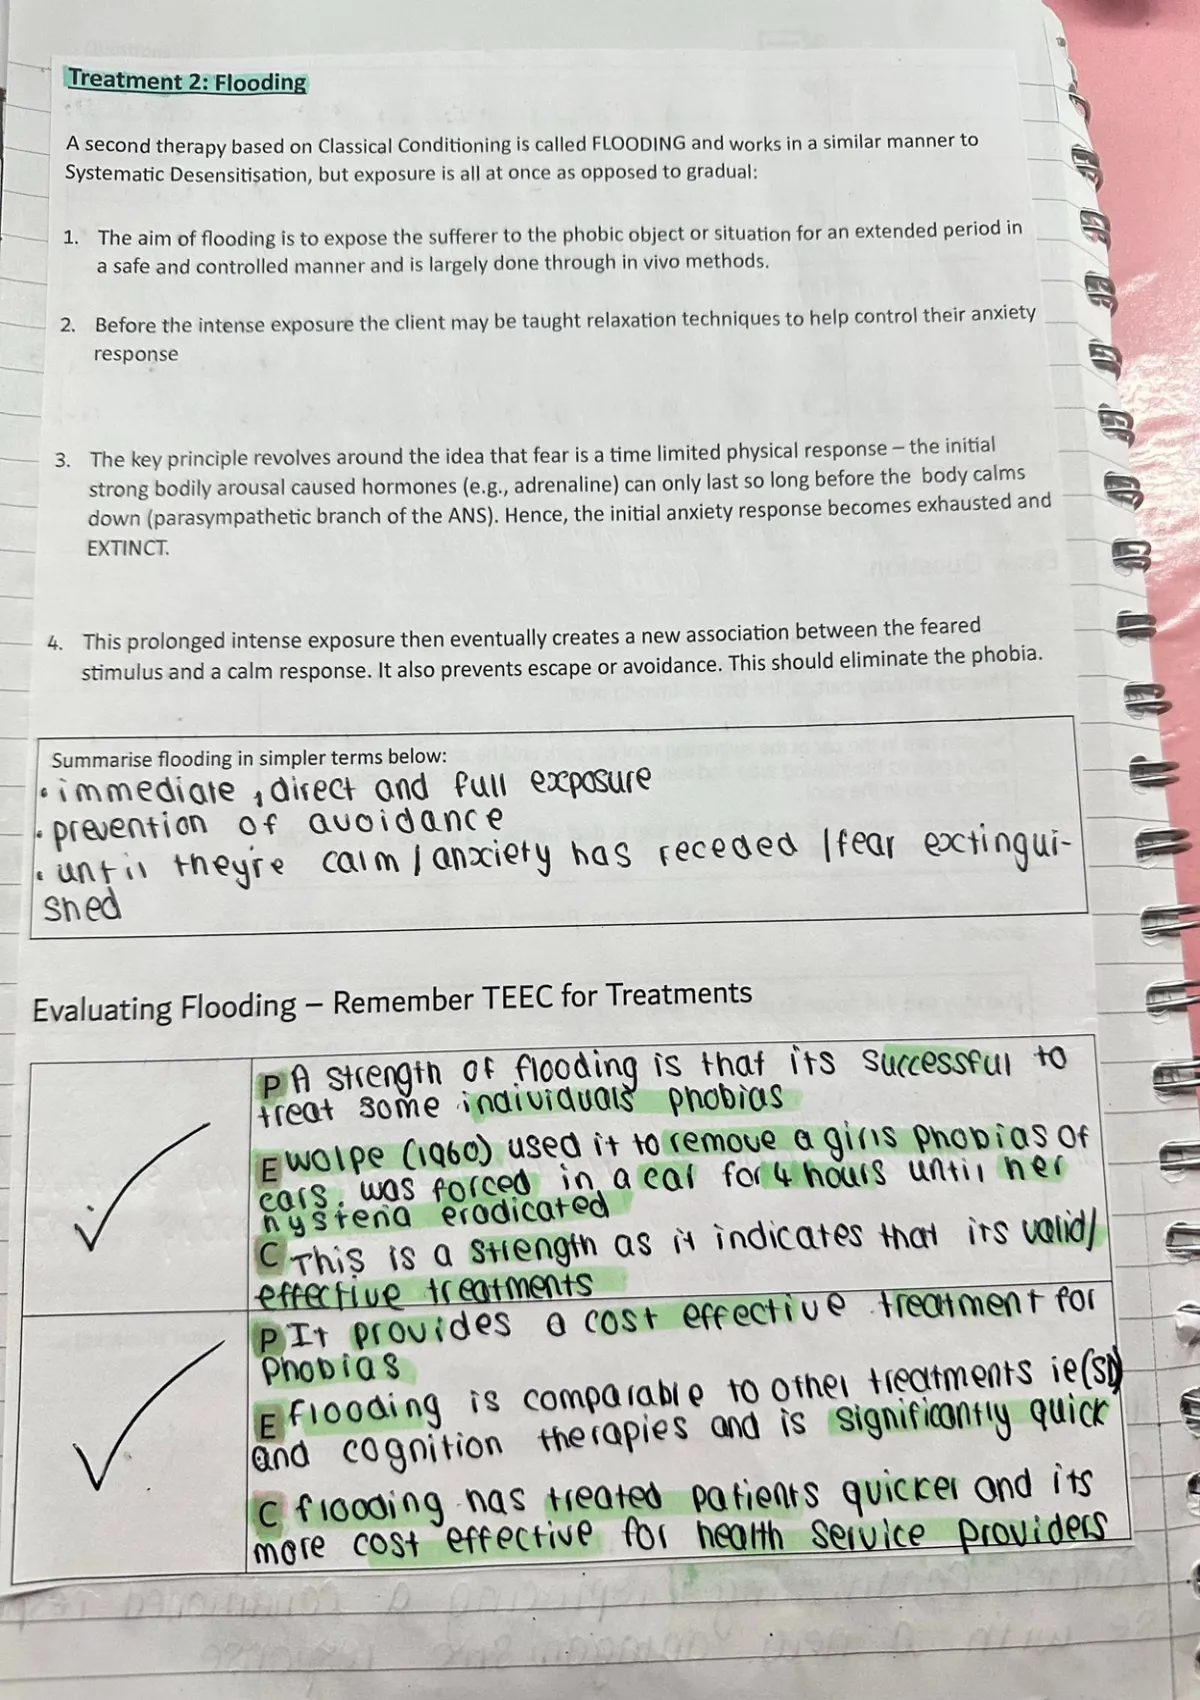 Treatment 2: Flooding
A second therapy based on Classical Conditioning is called FLOODING and works in a similar manner to
Systematic Desensitisation, but exposure is all at once as opposed to gradual:
1. The aim of flooding is to expose the sufferer to the phobic object or situation for an extended period in
a safe and controlled manner and is largely done through in vivo methods.
2. Before the intense exposure the client may be taught relaxation techniques to help control their anxiety
response
3. The key principle revolves around the idea that fear is a time limited physical response – the initial
strong bodily arousal caused hormones (e.g., adrenaline) can only last so long before the body calms
down (parasympathetic branch of the ANS). Hence, the initial anxiety response becomes exhausted and
EXTINCT.
4. This prolonged intense exposure then eventually creates a new association between the feared
stimulus and a calm response. It also prevents escape or avoidance. This should eliminate the phobia.
Summarise flooding in simpler terms below:
• immediate, direct and full exposure
• prevention of avoidance
• until they're calm / anxiety has receded / fear exctingui-
shed
Evaluating Flooding – Remember TEEC for Treatments
P A strength of flooding is that its successful to
treat some individuals phobias
E Wolpe (1960) used it to remove a girls phobias of
cars. was forced in a car for 4 hours until her
hysteria eradicated
C This is a strength as it indicates that its valid/
effective treatments
P It provides a cost effective treatment for
Phobias
E flooding is comparable to other treatments ie(SD)
and cognition therapies and is significantly quick
C flooding has treated patients quicker and its
more cost effective for health service providers